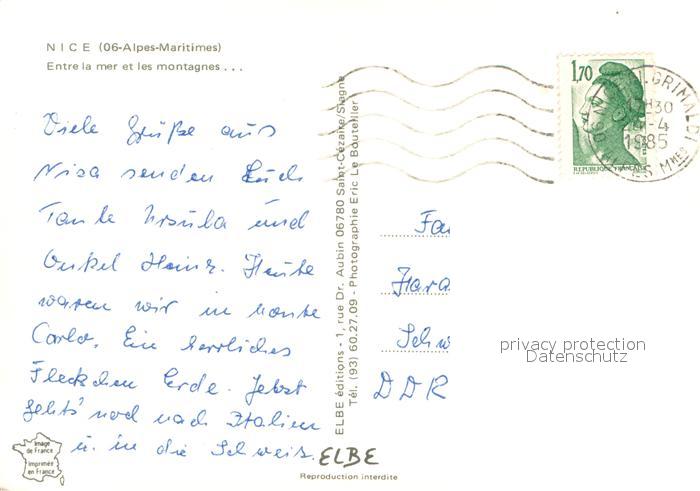 NICE (06-Alpes-Maritimes)
Entre la mer et les montagnes...
Viele Grüße aus
Nisa senden Euch
Tante Ursula und
Onkel Heinz. Heute
waren wir in Monte
Carlo. Ein herrliches
Fleckchen Erde. Jetzt
geht's noch nach Italien
u. in die Schweiz.
ELBE
ELBE éditions - 1, rue Dr. Aubin 06780 Saint-Cézaire/Siagne
Tél. (93) 60.27.09 - Photographie Eric Le Bouteiller
1,70
REPUBLIQUE FRANÇAISE
GRIMALDI
30
-4
1985
06
Fa
Hara
Schw
DDR
privacy protection
Datenschutz
Image
de France
Imprimée
en France
Reproduction interdite